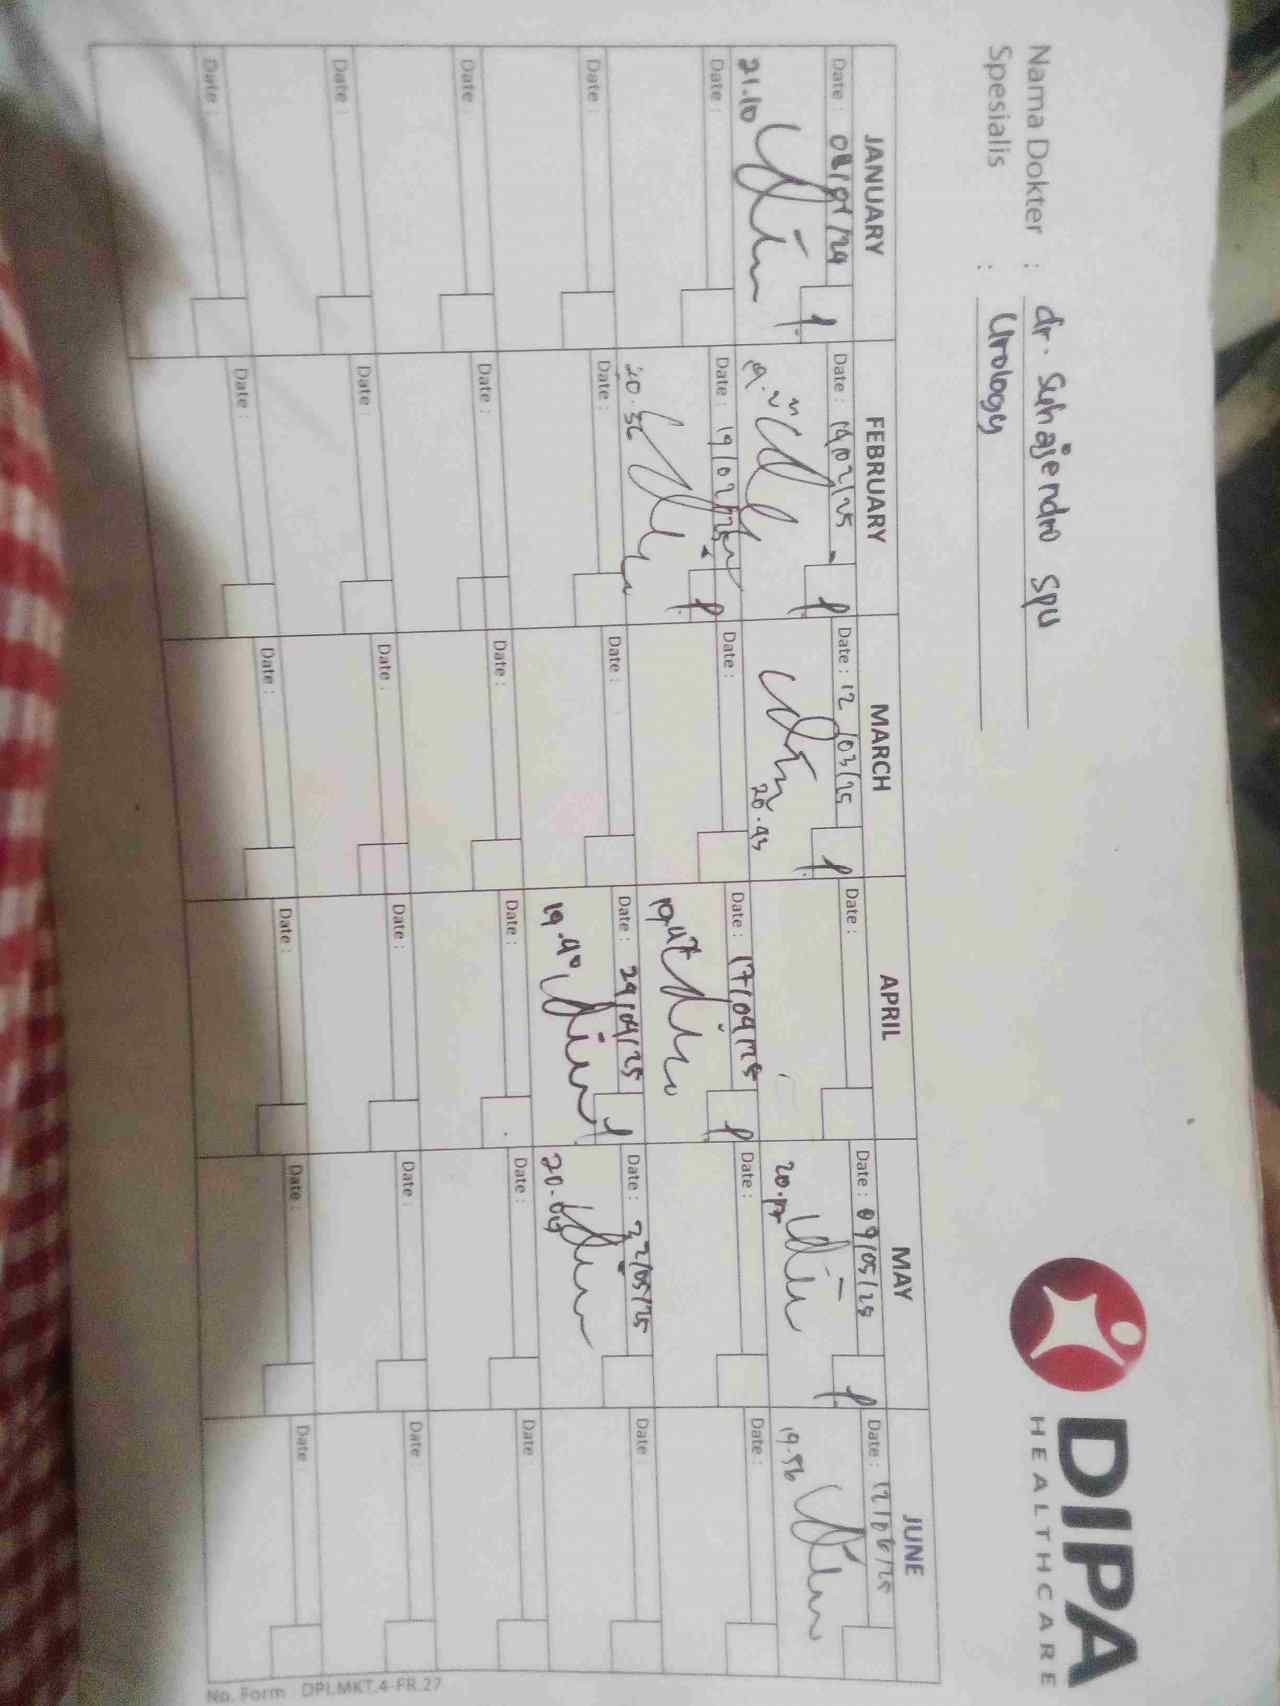 DIPA
HEALTHCARE
Nama Dokter : dr. Suhajendro SpU
Spesialis : Urology
JANUARY FEBRUARY MARCH APRIL MAY JUNE
Date : Date : 19/02/25 Date : 12/03/25 Date : Date : 09/05/25 Date : 12/06/25
21.10 20.43 20.17 19.56
Date : Date : 19/02/25 Date : Date : 17/04/25 Date : Date :
20.56 19.47
Date : Date : Date : Date : 29/04/25 Date : 22/05/25 Date :
19.40
Date : Date : Date : Date : Date : Date :
Date : Date : Date : Date : Date : Date :
Date : Date : Date : Date : Date : Date :
No. Form DPI.MKT.4-FR.27